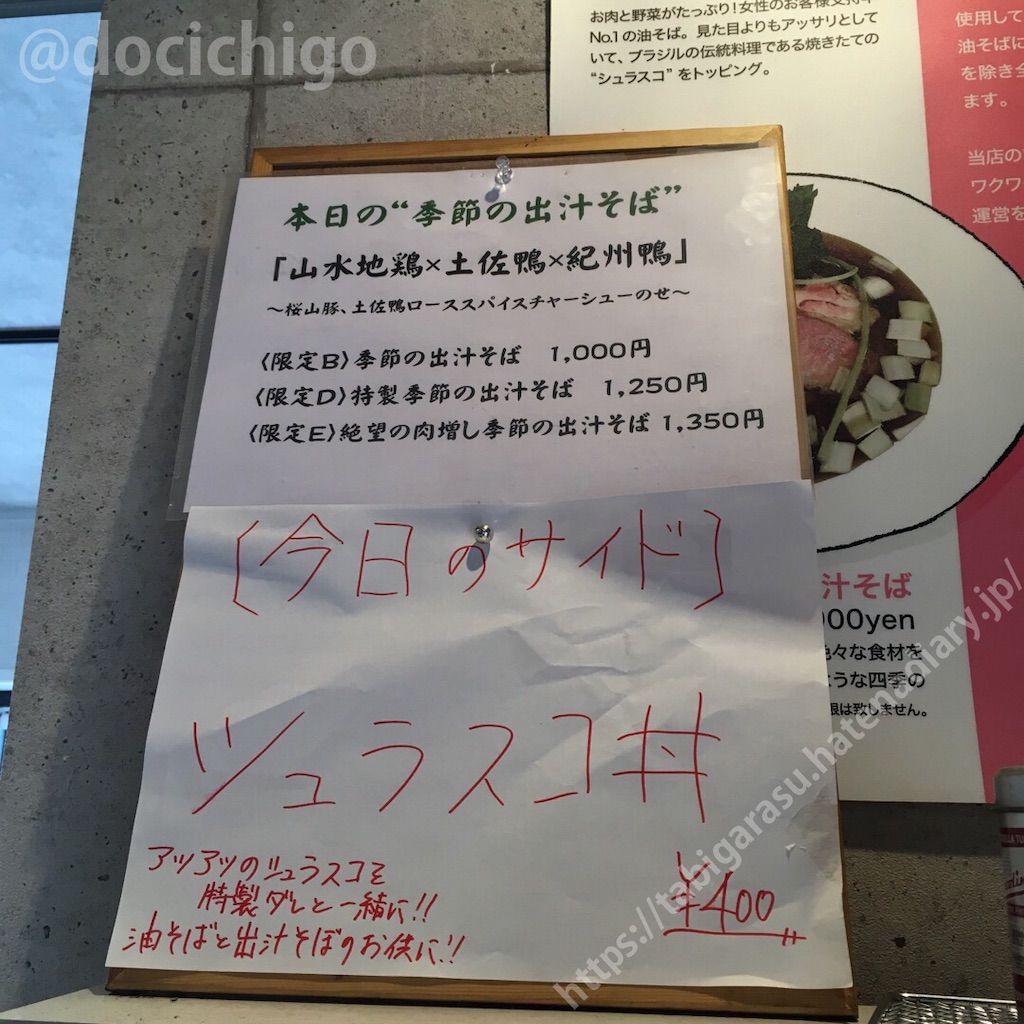 @docichigo
お肉と野菜がたっぷり!女性のお客様支持率
No.1の油そば。見た目よりもアッサリとして
いて、ブラジルの伝統料理である焼きたての
“シュラスコ”をトッピング。
使用して
油そばに
を除き全
ます。
当店の
ワクワ
運営を
本日の“季節の出汁そば”
「山水地鶏×土佐鴨×紀州鴨」
～桜山豚、土佐鴨ローススパイスチャーシューのせ～
〈限定B〉季節の出汁そば 1,000円
〈限定D〉特製季節の出汁そば 1,250円
〈限定E〉絶望の肉増し季節の出汁そば 1,350円
〔今日のサイド〕
シュラスコ丼
アツアツのシュラスコを
特製ダレと一緒に!!
油そばと出汁そばのお供に!!
¥400
汁そば
000yen
色々な食材を
ような四季の
限は致しません。
https://tabigarasu.hatenadiary.jp/